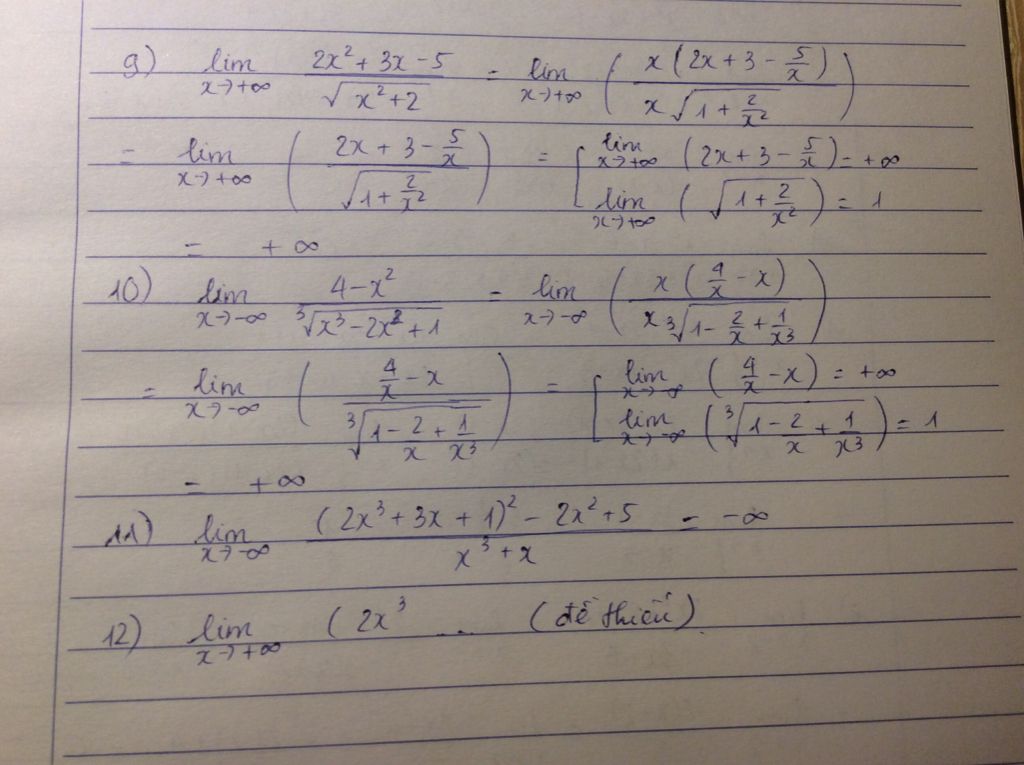 9) lim x→+∞ (2x² + 3x − 5)/(√(x² + 2)) = lim x→+∞ ( x(2x + 3 − 5/x) / x√(1 + 2/x²) )
= lim x→+∞ ( (2x + 3 − 5/x) / √(1 + 2/x²) ) = [ lim x→+∞ (2x + 3 − 5/x) = +∞
lim x→+∞ ( √(1 + 2/x²) ) = 1
= +∞
10) lim x→−∞ (4 − x²)/(∛(x³ − 2x² + 1)) = lim x→−∞ ( x(4/x − x) / x∛(1 − 2/x + 1/x³) )
= lim x→−∞ ( (4/x − x) / ∛(1 − 2/x + 1/x³) ) = [ lim x→−∞ (4/x − x) = +∞
lim x→−∞ ( ∛(1 − 2/x + 1/x³) ) = 1
= +∞
11) lim x→−∞ ((2x³ + 3x + 1)² − 2x² + 5)/(x³ + x) = −∞
12) lim x→+∞ (2x³ ... (đề thiếu)